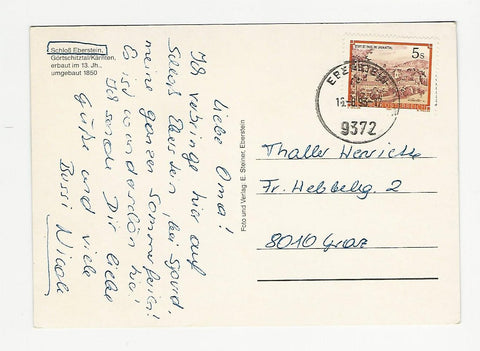 Schloß Eberstein,
Görtschitztal/Kärnten,
erbaut im 13. Jh.,
umgebaut 1850
Liebe Oma!
Ich verbringe hier auf
Schloß Eberstein, bei
meine ganzen Sommerferien!
Es ist wunderschön hier!
Ich sende Dir liebe
Grüße und viele
Bussi Nicole
Foto und Verlag: E. Steiner, Eberstein
5s
EBERSTEIN
9372
Thaller Henriette
Fr. Hebbelg 2
8010 Graz